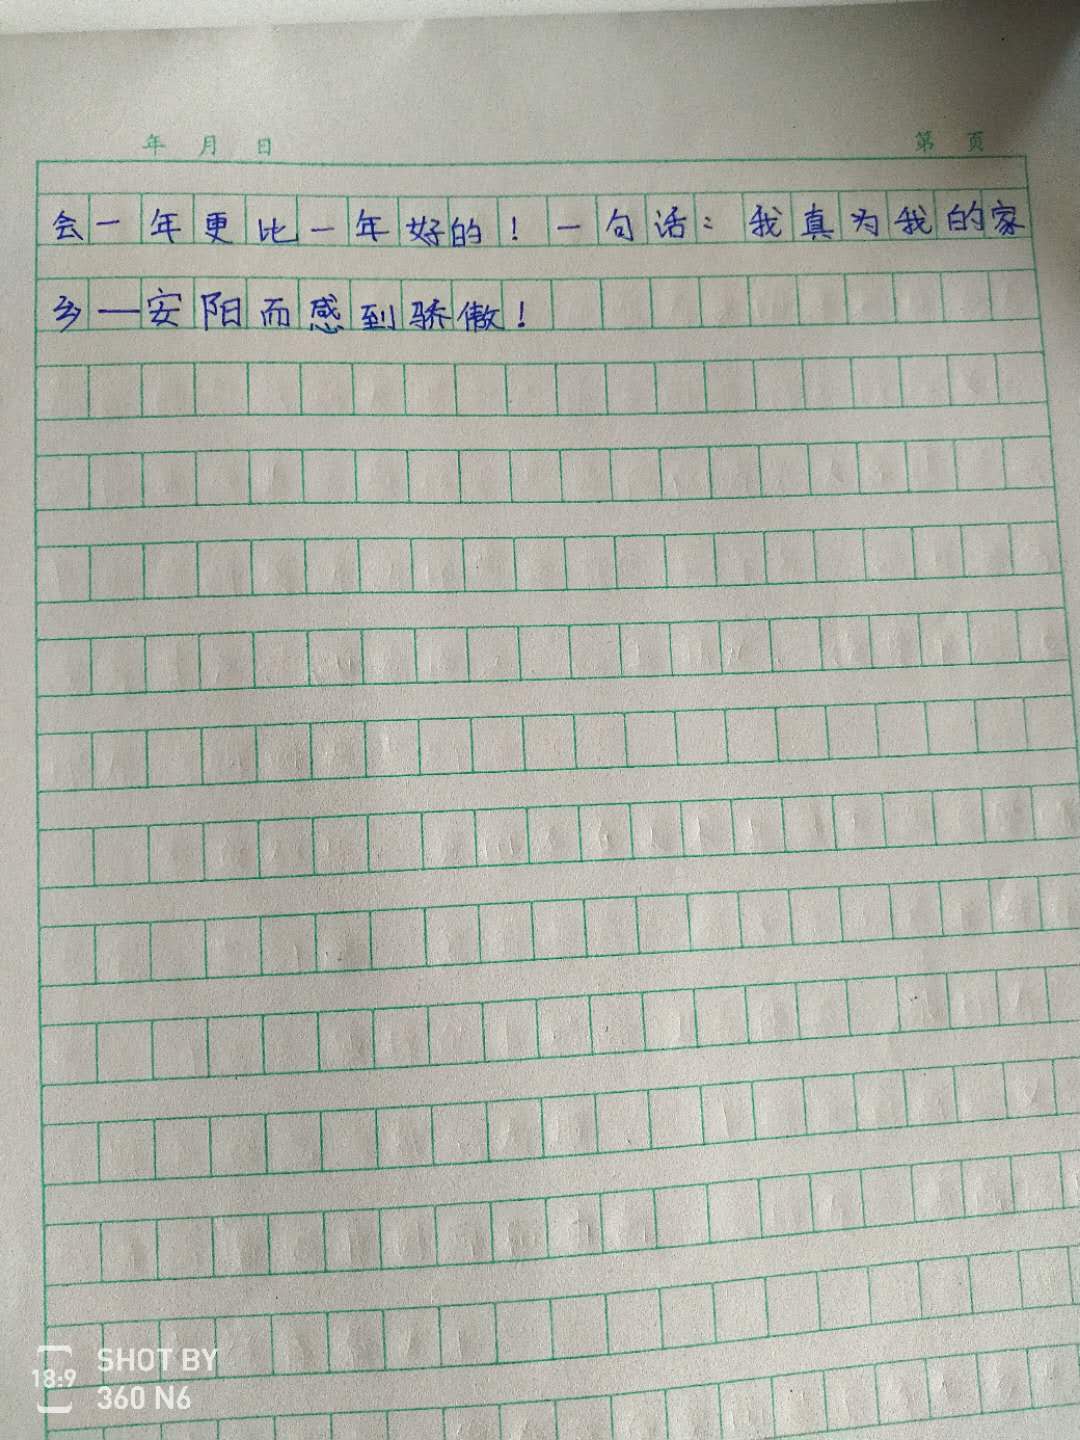 年 月 日 第 页
会一年更比一年好的！一句话：我真为我的家
乡—安阳而感到骄傲！
SHOT BY
18:9
360 N6